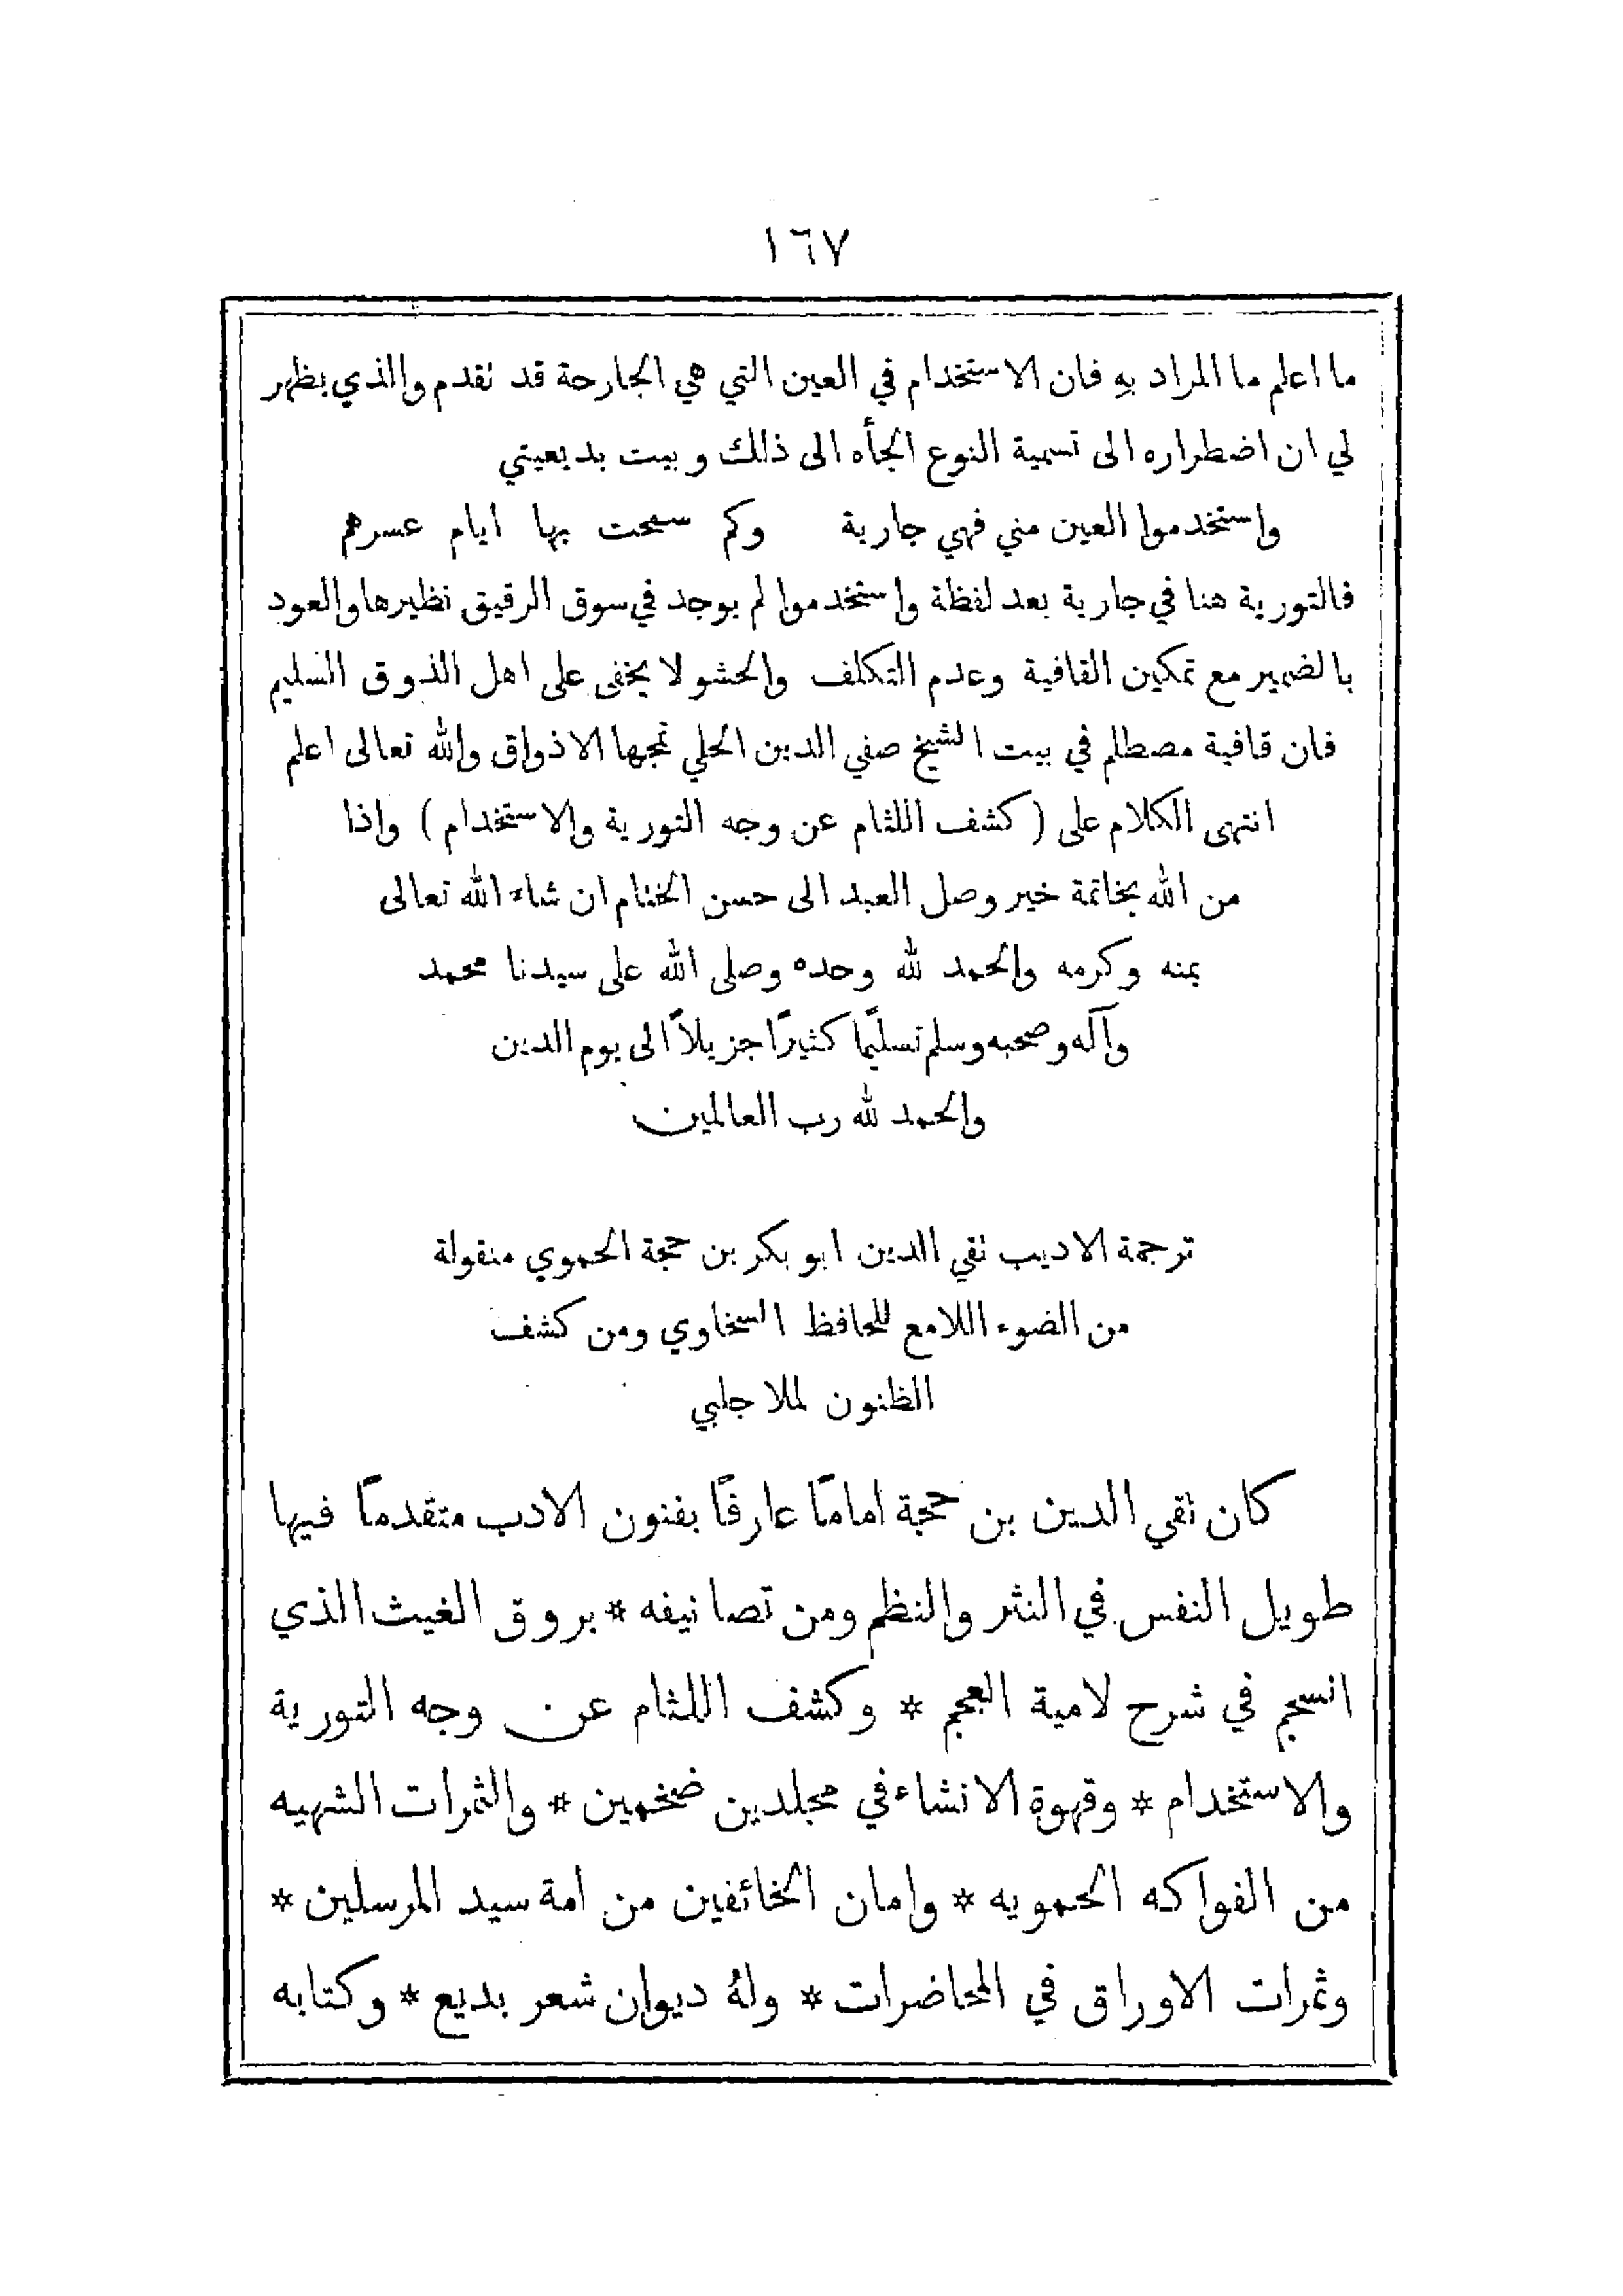 ١٦٧
ما اعلم ما المراد بهِ فان الاستخدام في العين التي هي الجارحة قد تقدم والذي يظهر
لي ان اضطراره الى تسمية النوع الجأه الى ذلك وبيت بديعيتي
واستخدموا العين مني فهي جارية وكم سمحت بها ايام عسرهم
فالتورية هنا في جارية بعد لفظة واستخدموا لم يوجد في سوق الرقيق نظيرها والعود
بالضمير مع تمكين القافية وعدم التكلف والحشو لا يخفى على اهل الذوق السليم
فان قافية مصطلم في بيت الشيخ صفي الدين الحلي تمجها الاذواق والله تعالى اعلم
انتهى الكلام على ( كشف اللثام عن وجه التورية والاستخدام ) واذا
من الله بخاتمة خير وصل العبد الى حسن الختام ان شاء الله تعالى
بمنه وكرمه والحمد لله وحده وصلى الله على سيدنا محمد
وآله وصحبه وسلم تسليمًا كثيرًا جزيلاً الى يوم الدين
والحمد لله رب العالمين
ترجمة الاديب تقي الدين ابو بكر بن حجة الحموي منقولة
من الضوء اللامع للحافظ السخاوي ومن كشف
الظنون لملا جلبي
كان تقي الدين بن حجة امامًا عارفًا بفنون الادب متقدمًا فيها
طويل النفس في النثر والنظم ومن تصانيفه * بروق الغيث الذي
انسجم في شرح لامية العجم * وكشف اللثام عن وجه التورية
والاستخدام * وقهوة الانشاء في مجلدين ضخمين * والثمرات الشهيه
من الفواكه الحمويه * وامان الخائفين من امة سيد المرسلين *
وثمرات الاوراق في المحاضرات * ولهُ ديوان شعر بديع * وكتابه